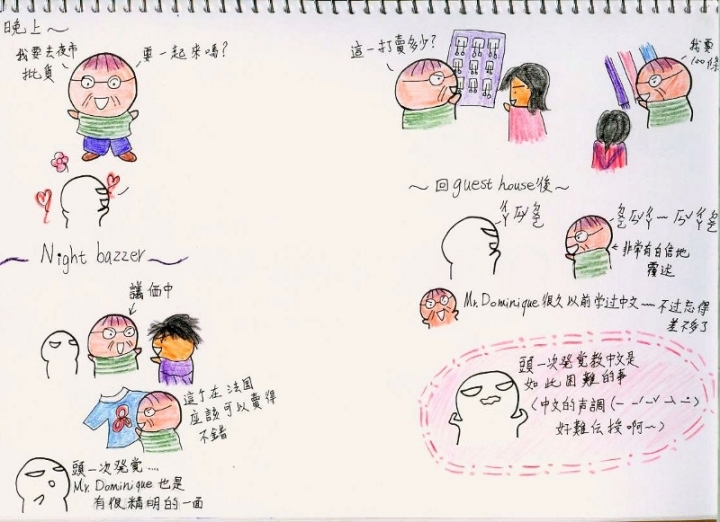 晚上～
我要去夜市
批貨
要一起來嗎?
～ Night bazzer ～
議価中
這个在法国
應該可以賣得
不錯
頭一次発覚....
Mr. Dominique 也是
有很精明的一面
這一打賣多少?
我要
100條
～回guest house後～
非常有自信地
覆述
Mr. Dominique 很久以前学过中文~~ 不过忘得
差不多了
頭一次発覚教中文是
如此困難的事
(中文的声調(一 ˊ ˇ ˋ)
好難伝授啊~~)